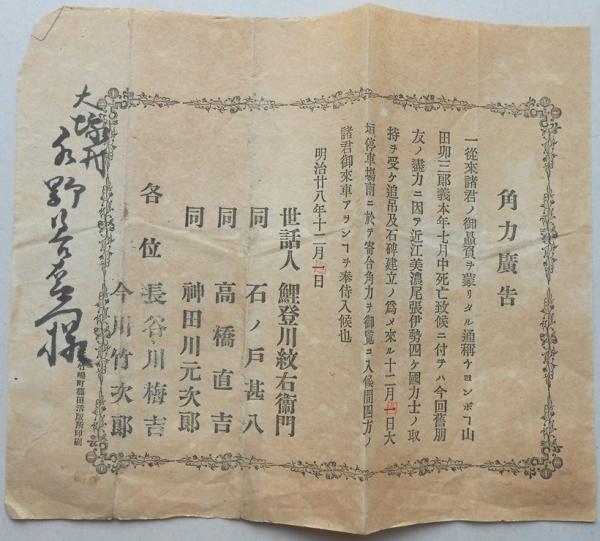 角力廣告
一從來諸君ノ御贔負ヲ蒙リタル通稱チヨンボヿ山
田卯三郎義本年七月中死亡致候ニ付テハ今回舊朋
友ノ盡力ニ因テ近江美濃尾張伊勢四ケ國力士ノ取
持ヲ受ケ追吊及石碑建立ノ爲メ來ル十二月四日大
垣停車塲南ニ於テ寄合角力ヲ御覧ニ入候間四方ノ
諸君御來車アランヿヲ奉待入候也
明治廿八年十二月 日
世話人 鯉登川紋右衞門
同 石ノ戸甚八
同 高橋直吉
同 神田川元次郎
長谷川梅吉
今川竹次郎
各位
大塚村
水野 樣
町 田活版所印刷